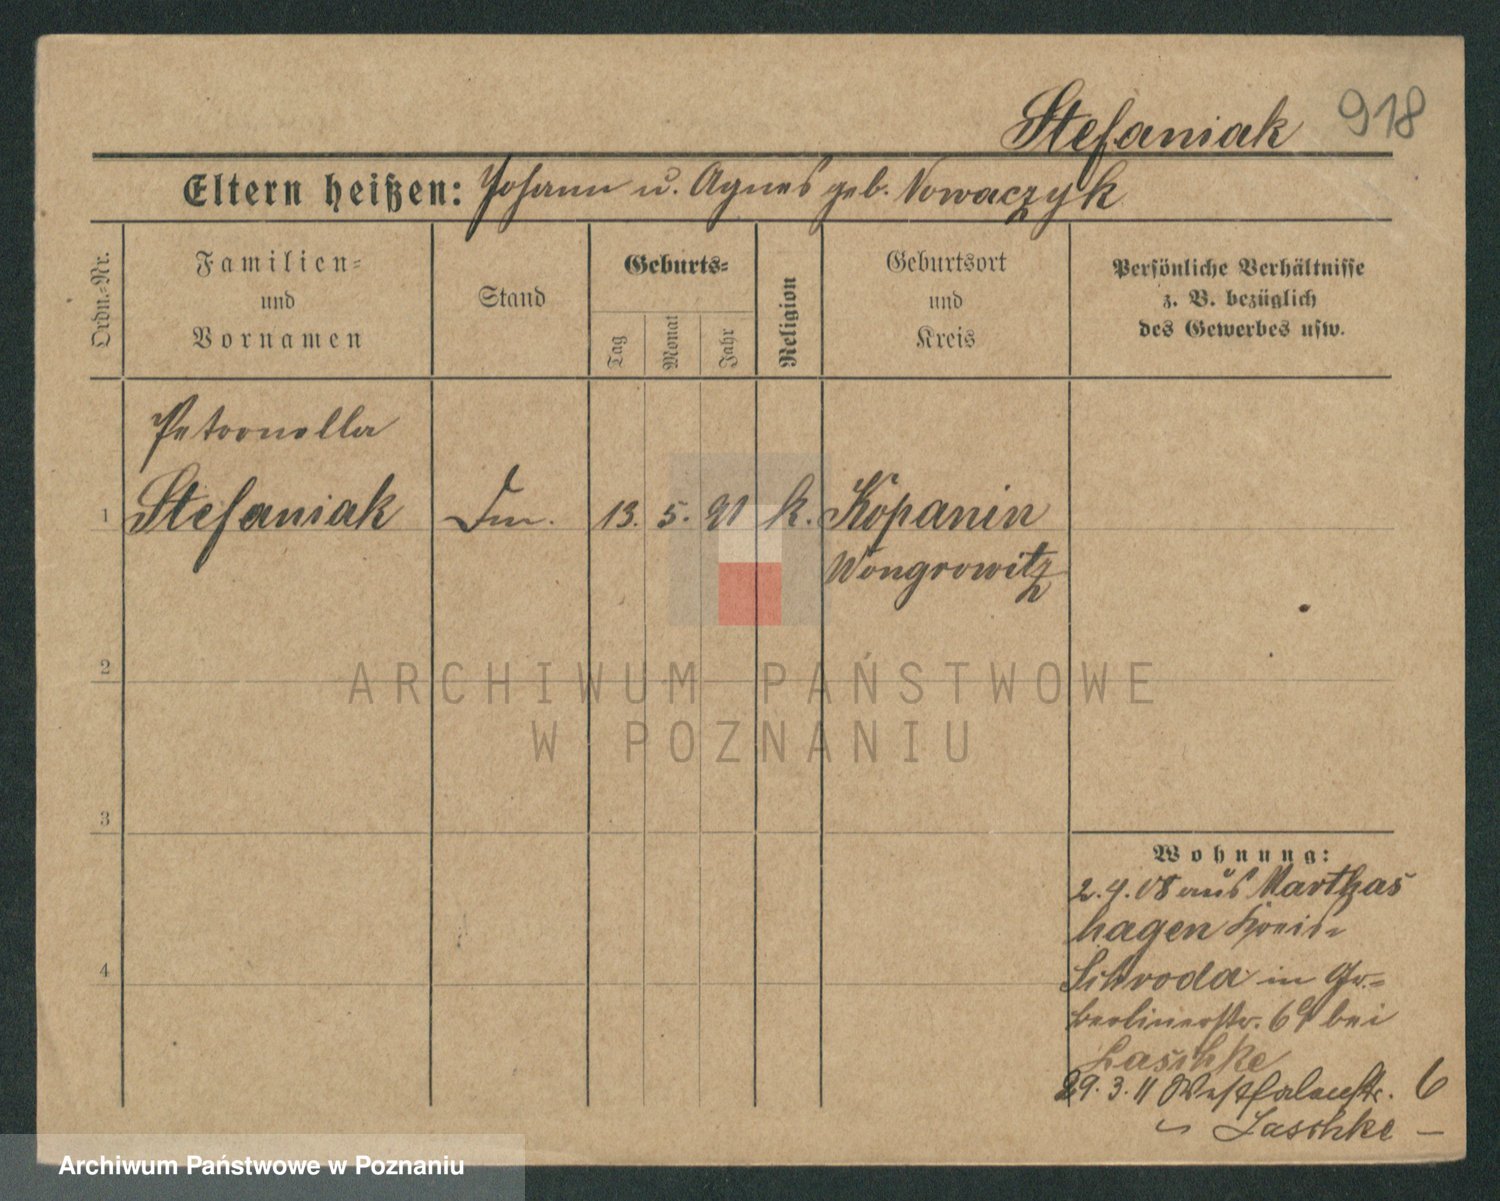 Stefaniak 918
Eltern heißen: Johann u. Agnes geb. Nowaczyk
Ordn.-Nr.
Familien-
und
Vornamen
Stand
Geburts-
Tag
Monat
Jahr
Religion
Geburtsort
und
Kreis
Persönliche Verhältnisse
z. B. bezüglich
des Gewerbes usw.
Petronella
1 Stefaniak 13. 5. 91 k. Kopanin
Wongrowitz
2
ARCHIWUM PAŃSTWOWE
W POZNANIU
3
Wohnung:
2.4.08 aus Marthas
hagen Kreis
4
Schroda in Gr.-
berlinerstr. bei
Laschke
29.3.11 Westfalenstr. 6
Laschke
Archiwum Państwowe w Poznaniu